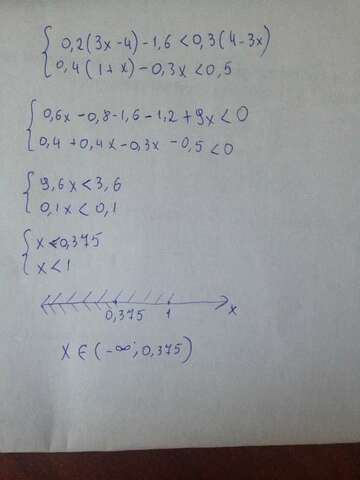 0,2(3x-4)-1,6<0,3(4-3x)
0,4(1+x)-0,3x<0,5
0,6x-0,8-1,6-1,2+9x<0
0,4+0,4x-0,3x-0,5<0
9,6x<3,6
0,1x<0,1
x<0,375
x<1
0,375 1 x
x∈(-∞;0,375)